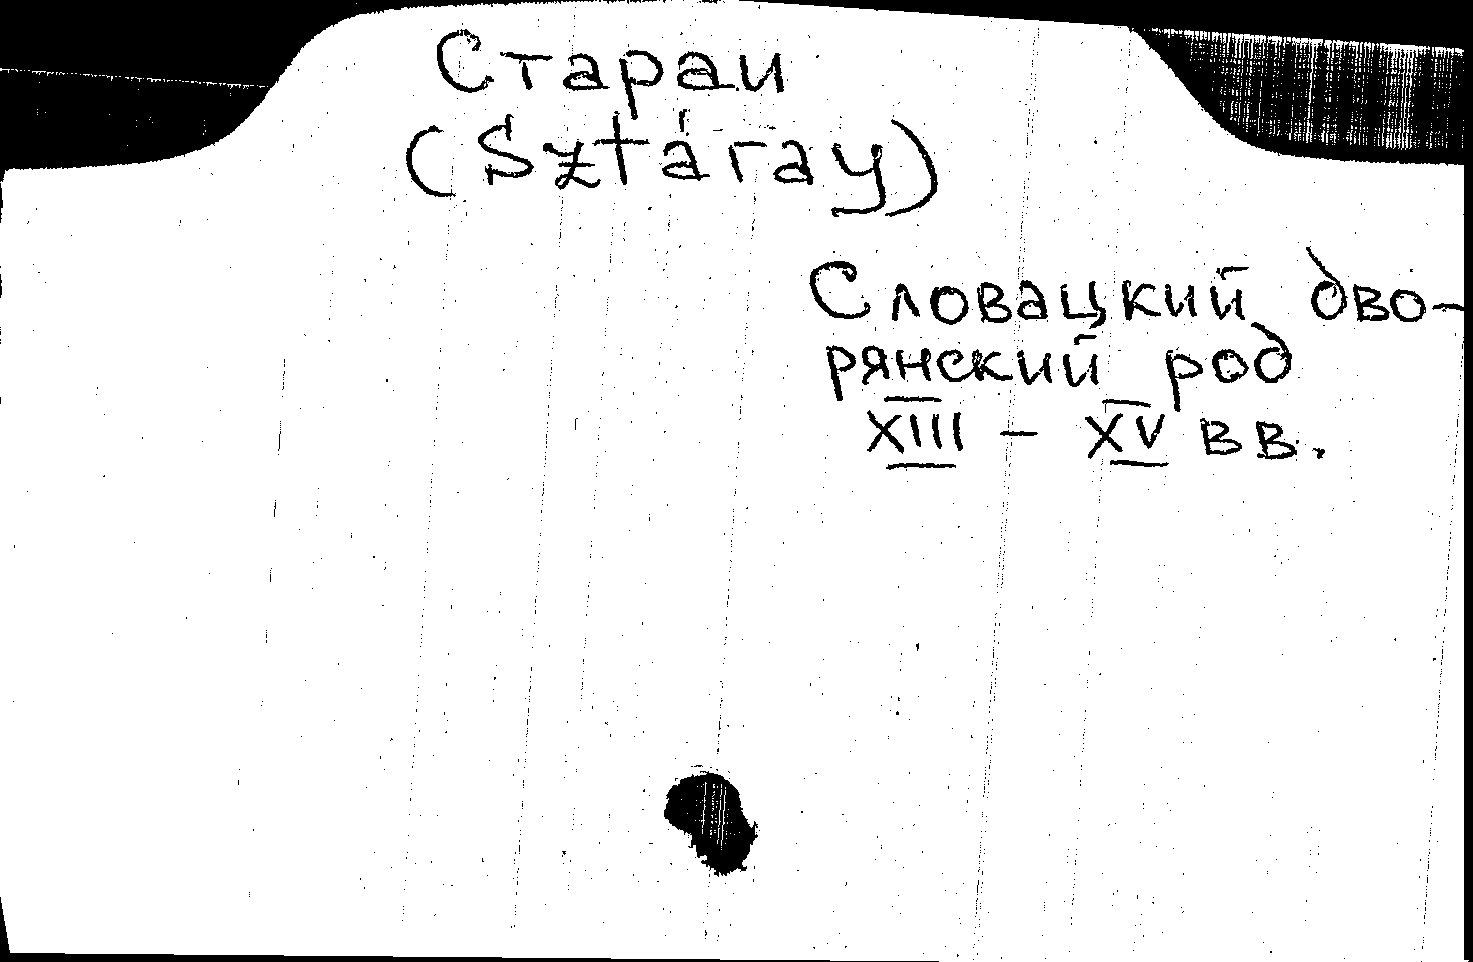 Стараи
(Sztáray)
Словацкий дво-
рянский род
XIII - XV вв.